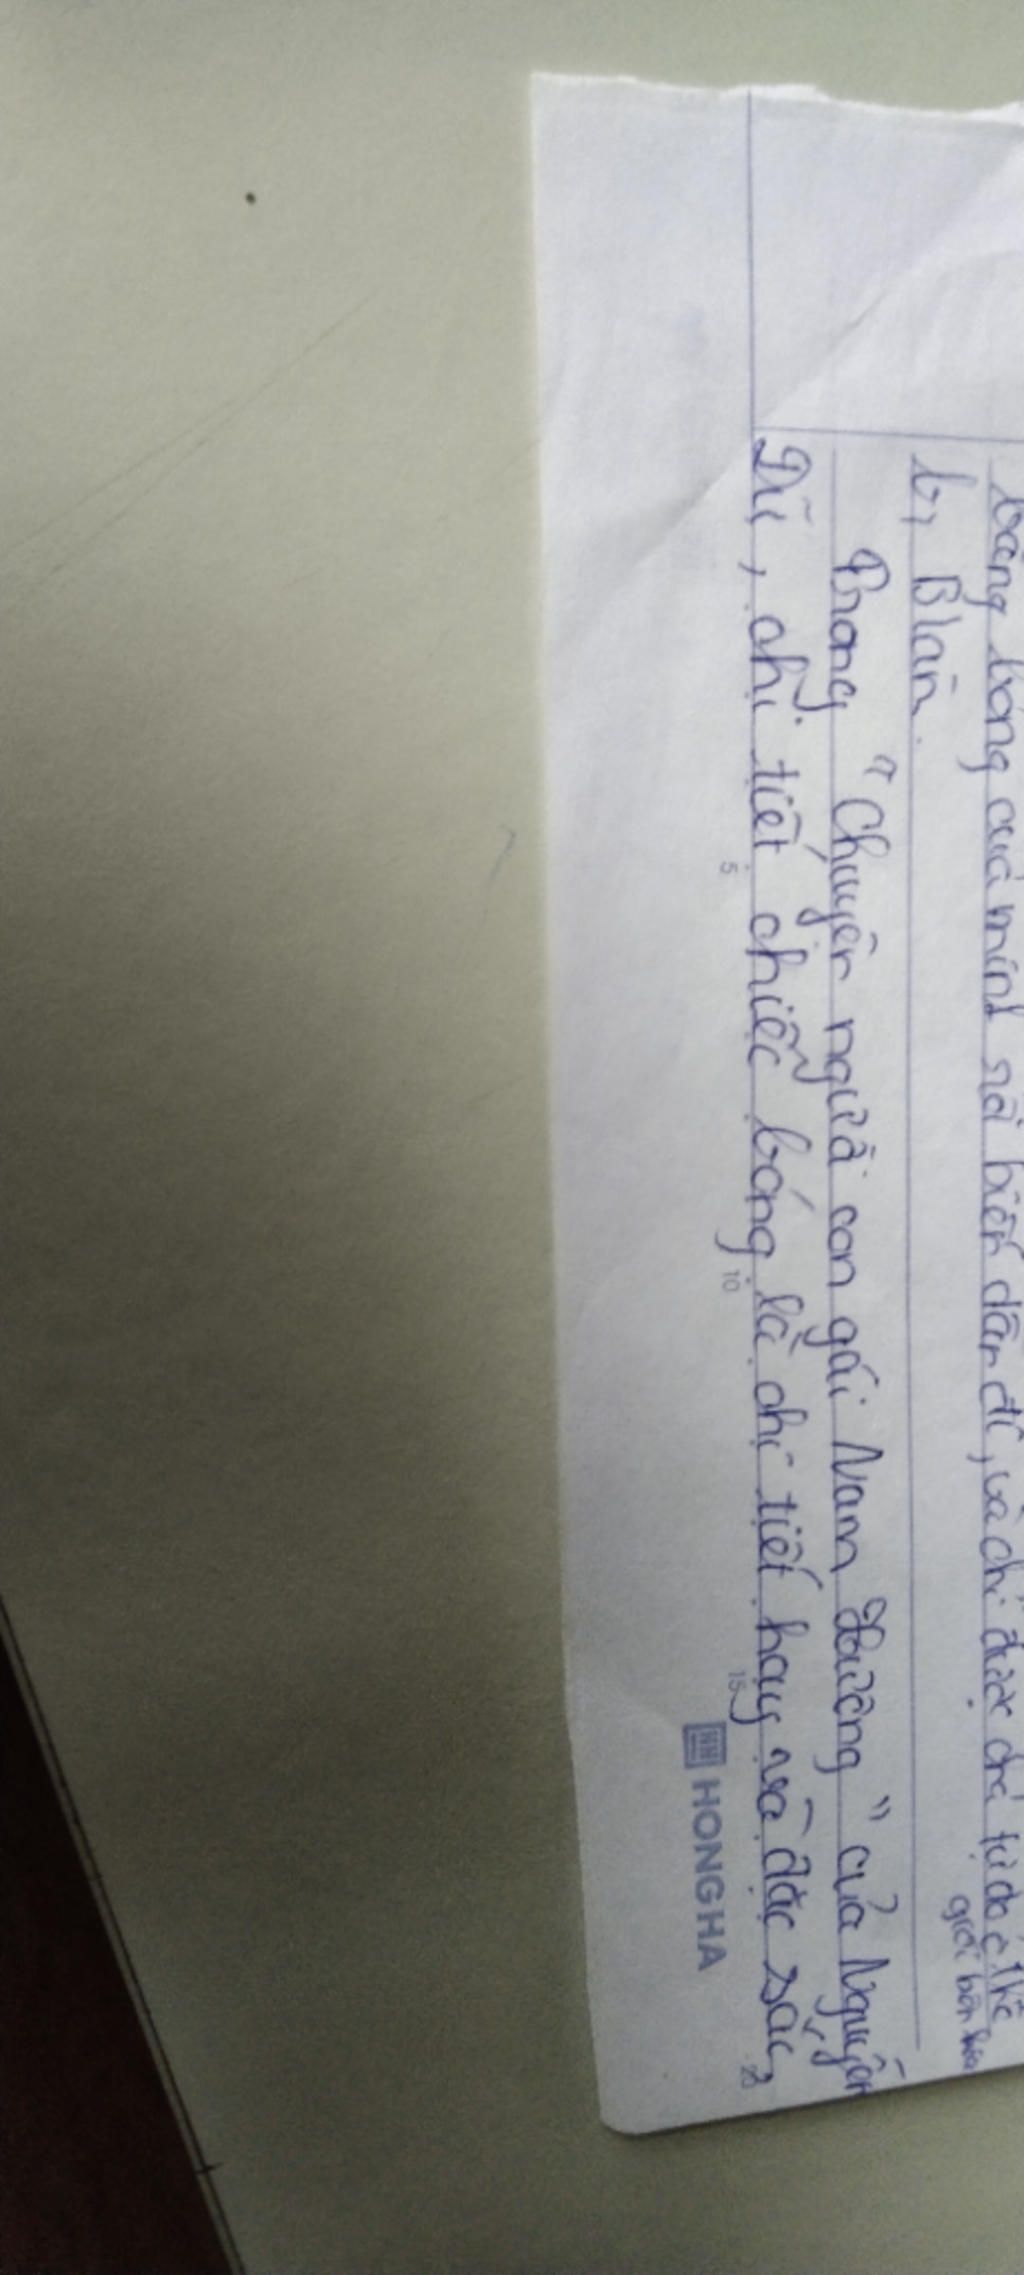 bằng bóng của mình rồi biến dần đi, và chỉ được chả tự do ở thế
giới bên kia
b, Blàn.
Trong "Chuyện người con gái Nam Xương" của Nguyễn
Dữ, chi tiết chiếc bóng là chi tiết hay và đặc sắc,
5 10 15 20
HONG HA